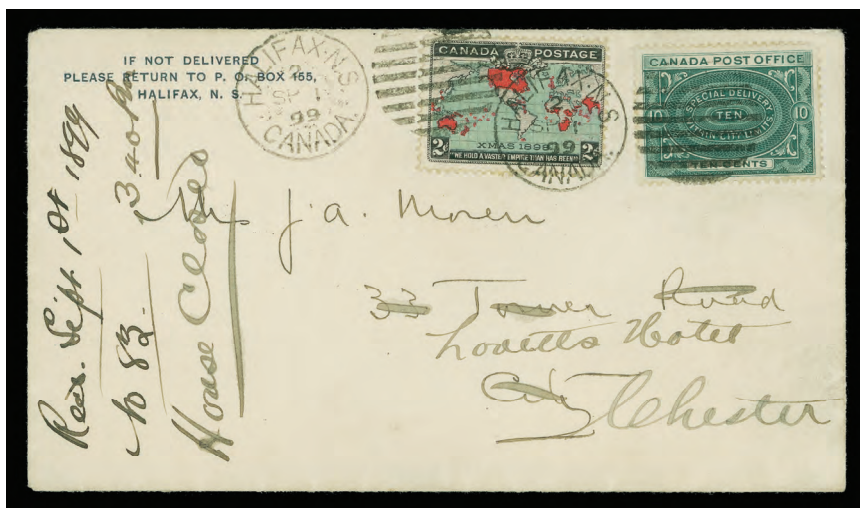 IF NOT DELIVERED
PLEASE RETURN TO P. O. BOX 155,
HALIFAX, N. S.
HALIFAX·N.S.
2
SP 1
99
CANADA.
CANADA POSTAGE
XMAS 1898
2c 2c
"WE HOLD A VASTER EMPIRE THAN HAS BEEN"
HALIFAX·N.S.
2
SP 1
99
CANADA
CANADA POST OFFICE
SPECIAL DELIVERY
10 TEN 10
WITHIN CITY LIMITS
TEN CENTS
Recd. Sept. 1st 1899
No 83. 3 40
House Closed
Mrs J. A. Moren
33 Tower Road
Lovetts Hotel
City Chester